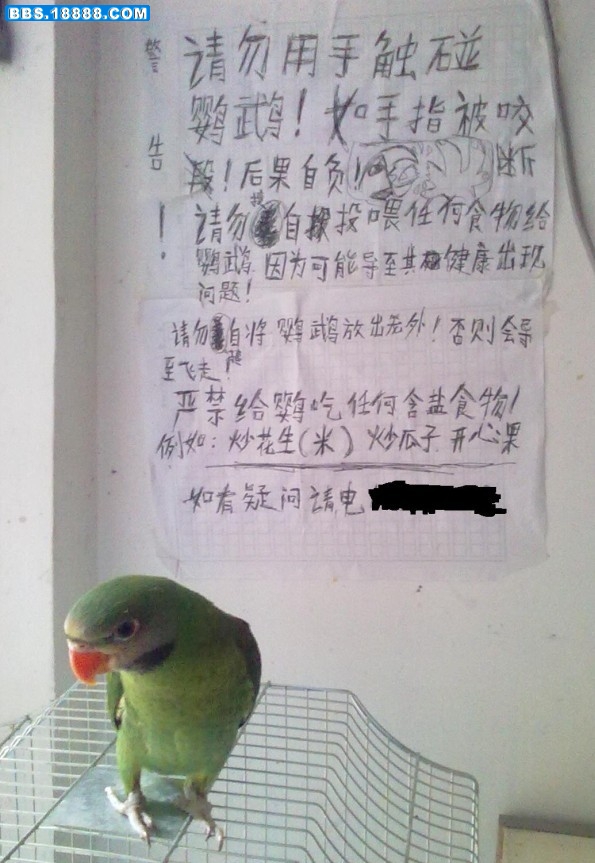 BBS.18888.COM
警告！
请勿用手触碰
鹦鹉！如手指被咬断
段！后果自负！
请勿擅自投喂任何食物给
鹦鹉，因为可能导至其健康出现
问题！
请勿擅自将鹦鹉放出笼外！否则会导
至飞走！
严禁给鹦吃任何含盐食物！
例如：炒花生（米）炒瓜子 开心果
如有疑问请电